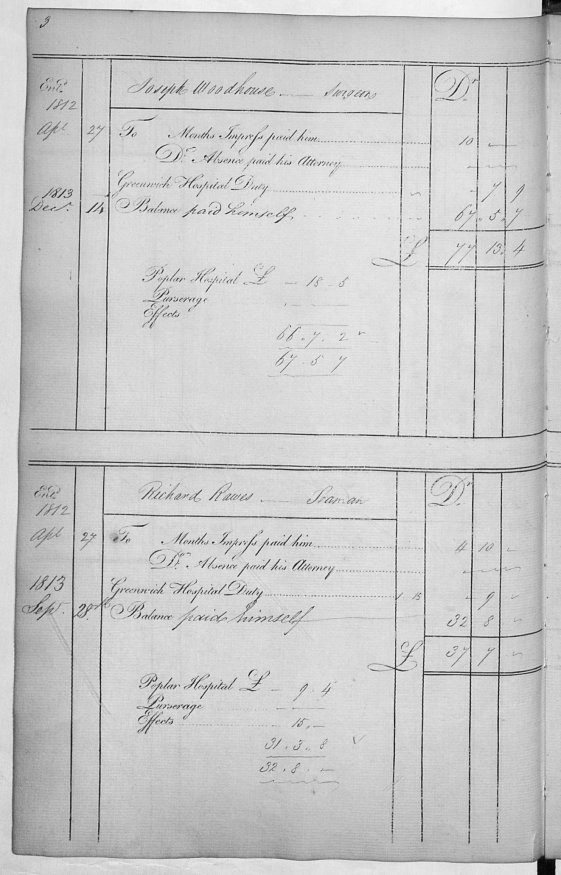 3
Joseph Woodhouse — Surgeon Dr
Entd. 1812
Apl 27 To Months Impress paid him 10 „ —
Do. Absence paid his Attorney — — —
Greenwich Hospital Duty — „ 7 „ 9
1813
Decr. 14 Balance paid himself. 67 „ 5 „ 7
£ 77 „ 13 „ 4
Poplar Hospital £ — 18 „ 5
Purserage — — —
Effects
66 „ 7 „ 2
67 „ 5 „ 7
Richard Rawes — Seaman Dr
Entd. 1812
Apl 27 To Months Impress paid him 4 „ 10 „ —
Do. Absence paid his Attorney — — —
Greenwich Hospital Duty — „ 9 „ —
1813
Sepr. 28 Balance paid himself 32 „ 8 „ —
£ 37 „ 7 „ —
Poplar Hospital £ — 9 „ 4
Purserage — — —
Effects — 15 „ —
31 „ 3 „ 8
32 „ 8 „ —